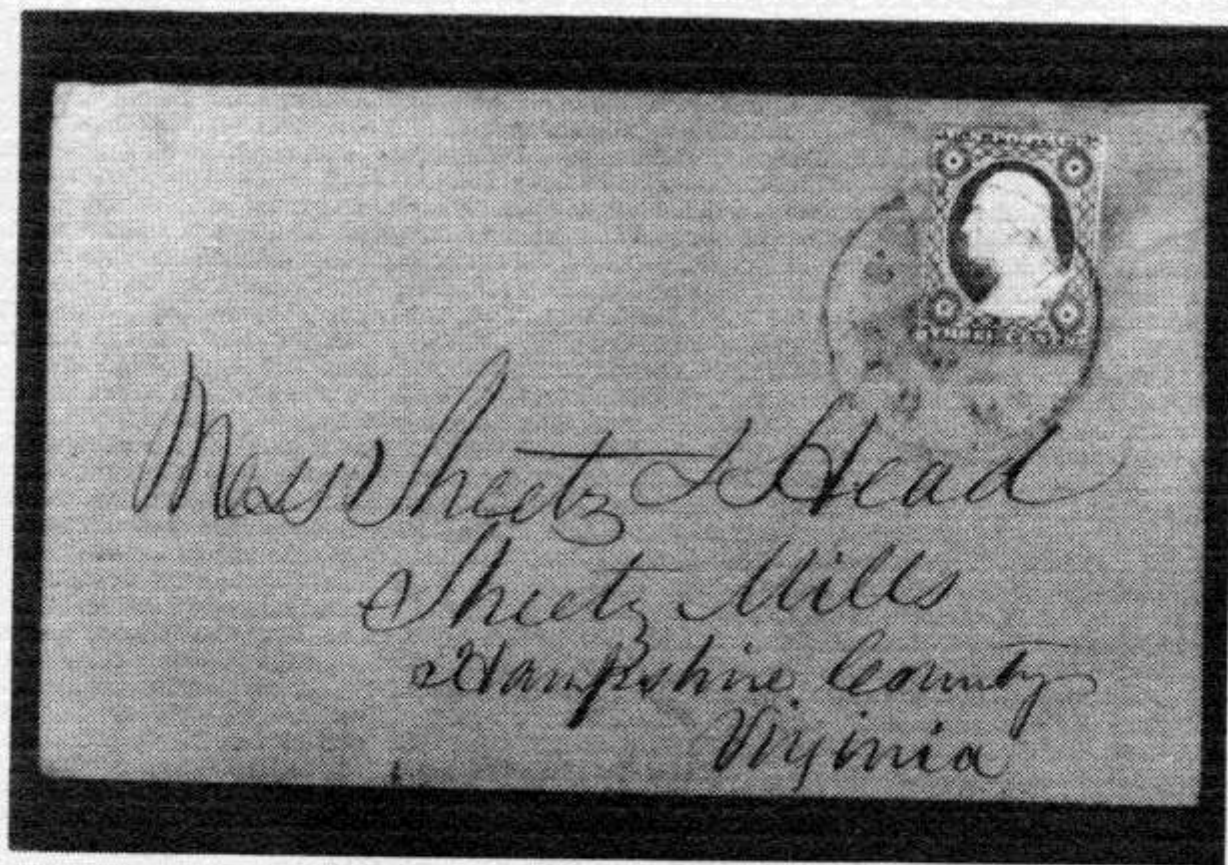 THREE CENTS
Mess Sheetz & Head
Sheetz Mills
Hampshire County
Virginia